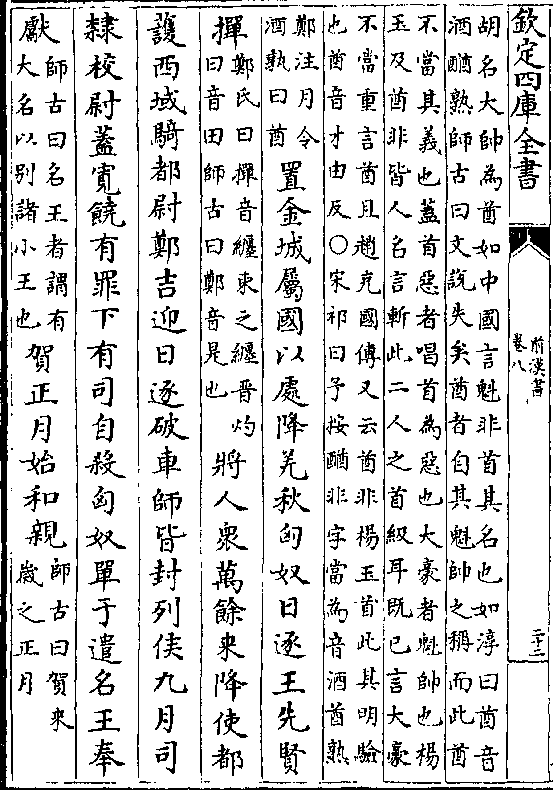 欽定四庫全書
前漢書
卷八
二十二
胡名大帥為酋如中國言魁非首其名也如淳曰酋音
酒醔熟師古曰文說失矣酋者自其魁帥之稱而此酋
不當其義也蓋首惡者唱首為惡也大豪者魁帥也楊
玉及酋非皆人名言斬此二人之首級耳既已言大豪
不當重言酋且趙充國傳又云酋非楊玉首此其明驗
也酋音才由反○宋祁曰予按醔非字當為音酒酋熟
鄭注月令
酒熟曰酋
置金城屬國以處降羌秋匈奴日逐王先賢
撣
鄭氏曰撣音纏束之纏晉灼
曰音田師古曰鄭音是也
將人衆萬餘來降使都
護西域騎都尉鄭吉迎日逐破車師皆封列侯九月司
隸校尉蓋寛饒有罪下有司自殺匈奴單于遣名王奉
獻
師古曰名王者謂有
大名以别諸小王也
賀正月始和親
師古曰賀來
歲之正月